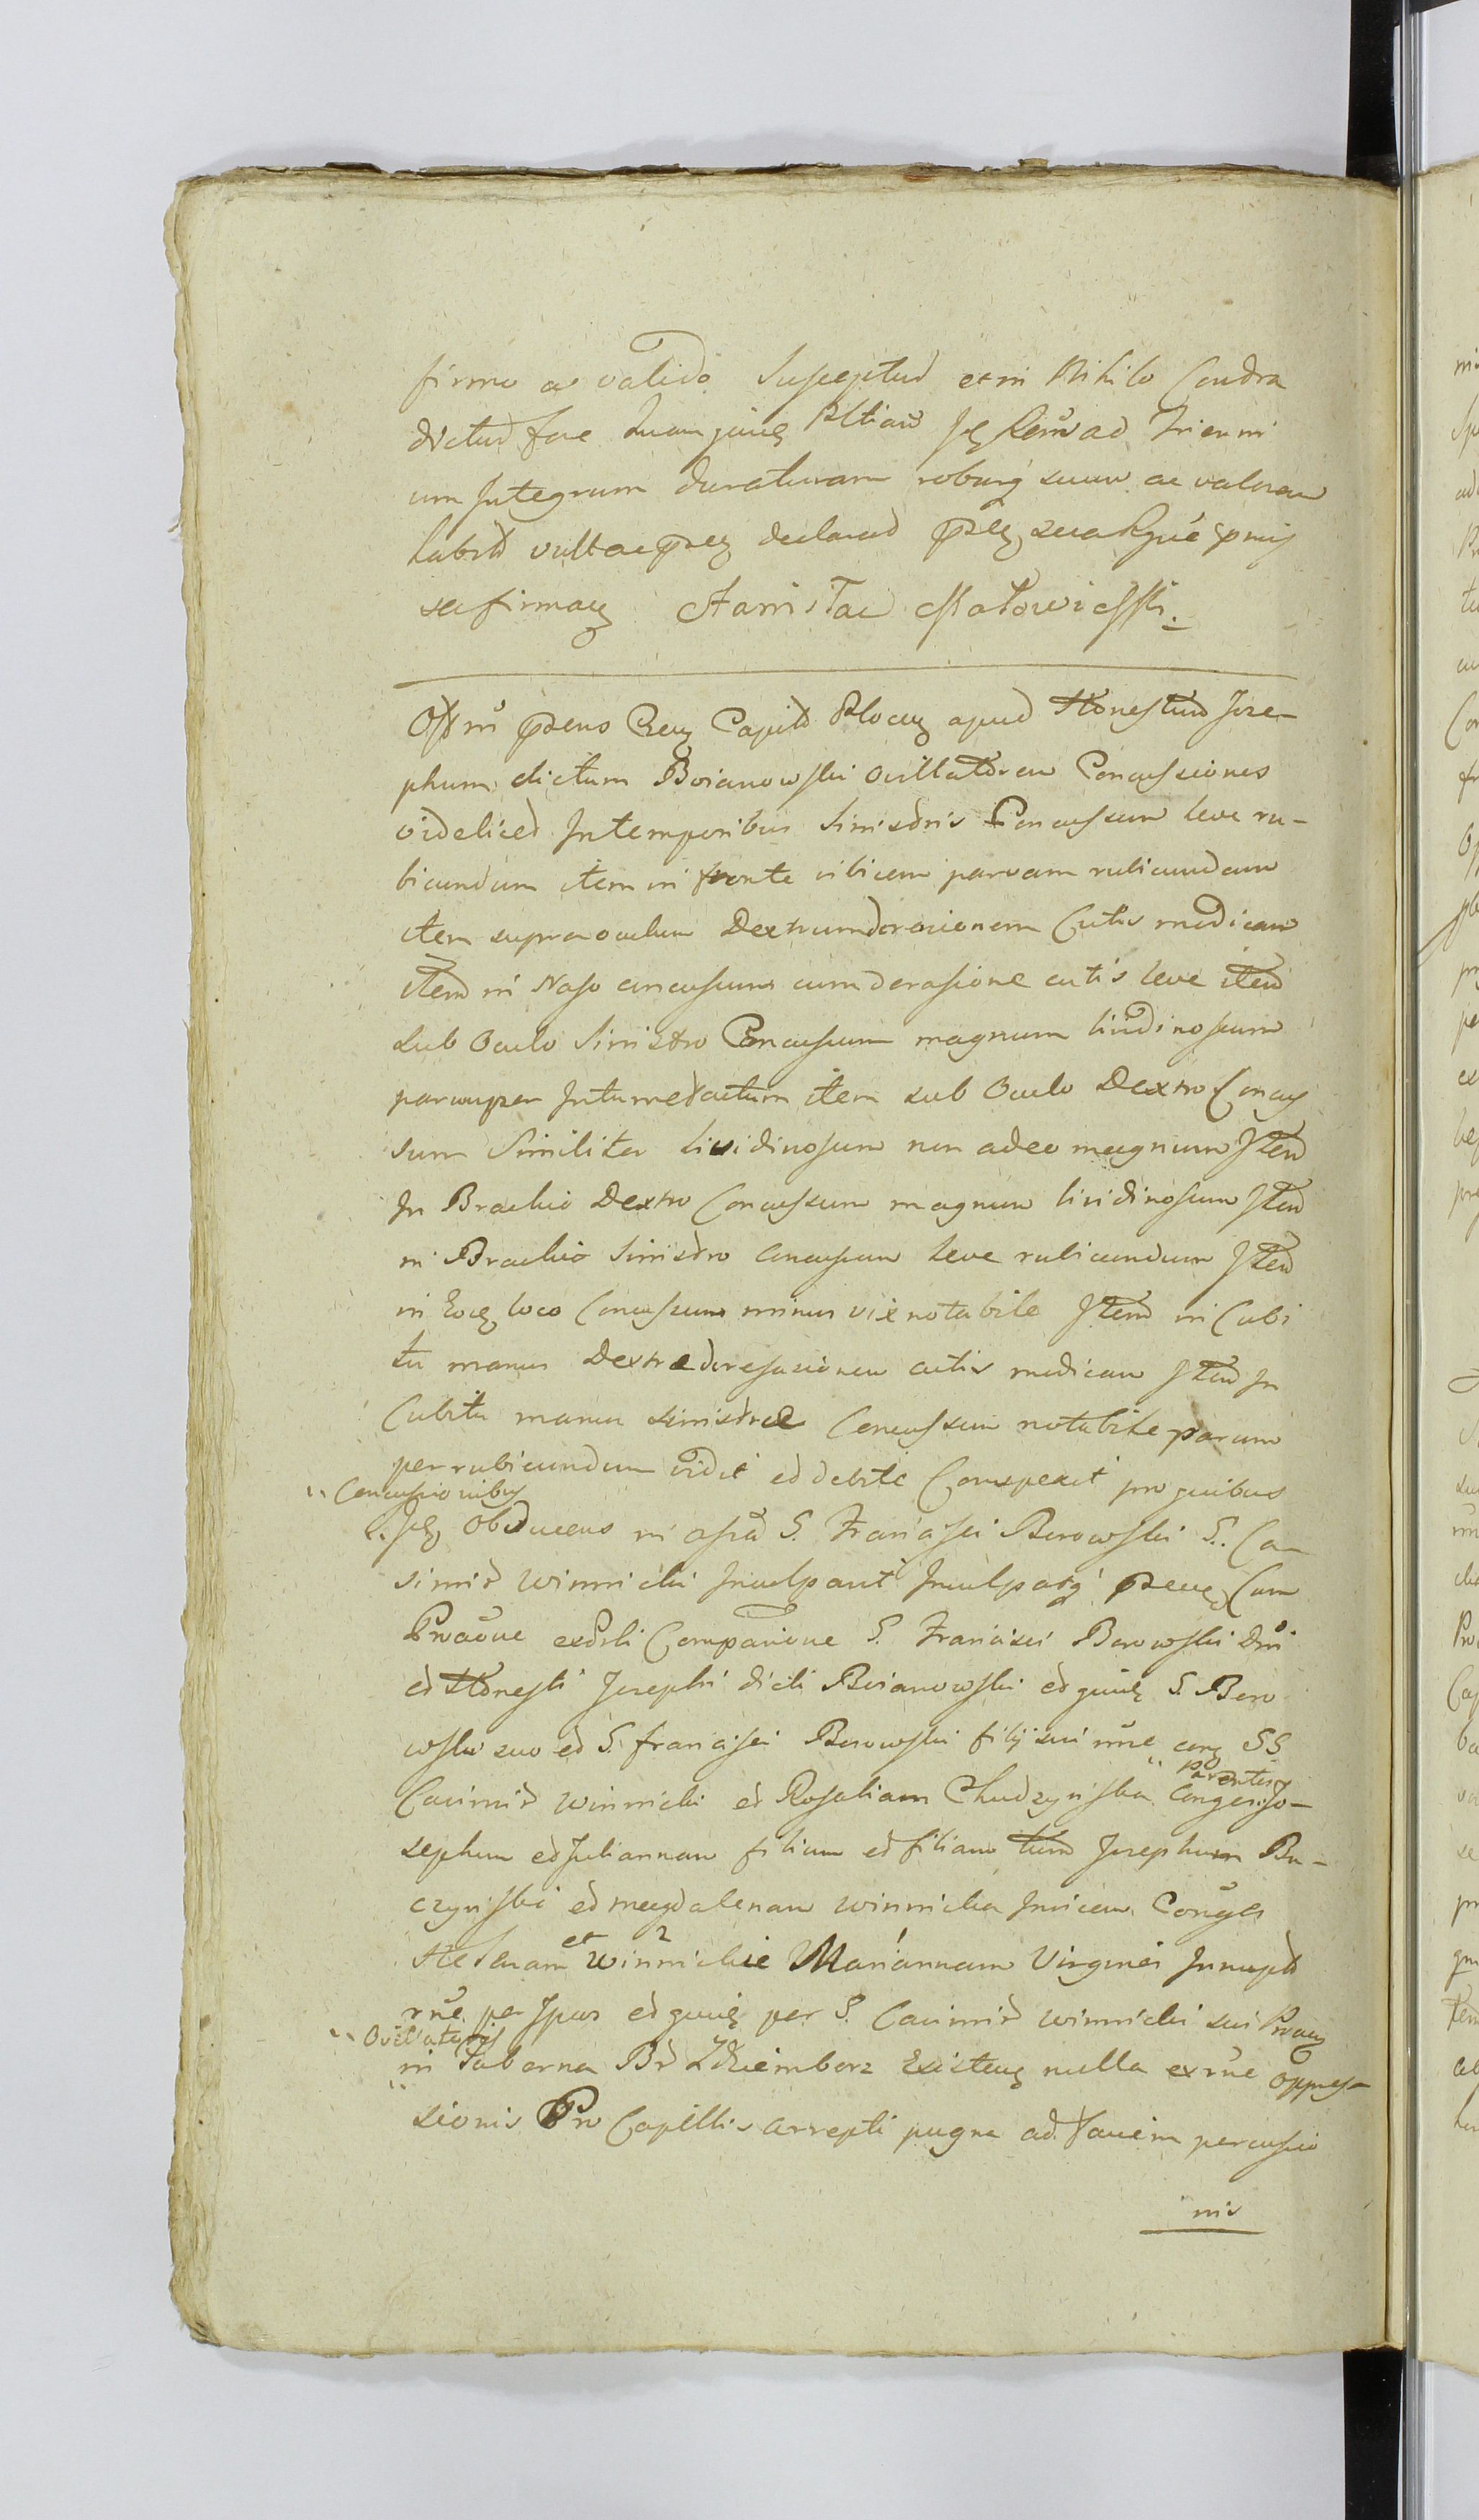 firmo ac valido Susceptud et in Nihilo Condra
dictud fore quamquid Pltiam Js Remad Trienni
um Integrum duraturam roburq suum ac valorem
habeid vult ac declarad suaque
se firmaq Stanislaw
Offm psens Castr Capitd Plocen apud Honestum Jose-
phum dictum Boianowski ovillatorem Concussiones
videliced In temporibus Sinisdris Concussum leve ru-
bicundum item in fronte vibicem parvam rubicundam
item supra oculum Dextrum derasionem Cutis modicam
item in Naso concussum cum derasione cutis leve item
Sub Oculo Sinistro Concussum magnum lividinosum
parumper Intumefactum item sub Oculo Dextro Concus
sum Similiter lividinosum non adeo magnum Item
In Brachio Dextro Concussum magnum lividinosum Item
in Brachio Sinisdro Concussum leve rubicundum Item
in Eod loco Concussum minus vix notabile Item in Cubi
tu manus Dextrae derasionem cutis modicam Item In
Cubitu manus sinisdrae Concussum notabile parum
per rubicundum vidit ed debite Conspexit pro quibus
Concussionibus
Obducens in assa S. Francisci Borowski S. Ca
simird Winnicki Inculpavit Inculpatq psene Cum
Proaone Comparione S. Francisci Borowski Dni
ed Honesti Josephi dicti Boianowski ed quid S. Boro
wski suo ed S. francisci Borowski filij sui nne conq SS
parentes
Casimird Winnicki ed Rosaliam Chudzynska Conges Jo-
sephum ed Juliannam filium ed filiam tum Josephum Bu-
czynski ed magdalenam winnicka Invicem Conges
et 2
Helenam Winnickie Mariannam Virgines Innuptd
rne per Ipsos ed quid per S. Casimird Winnicki sui
Oviliatoris
in Taberna Bd Zdziemborz Existens nulla ex rne oppres-
sionis Pro Capillis arrepti pugna ad faciem percussio
nis